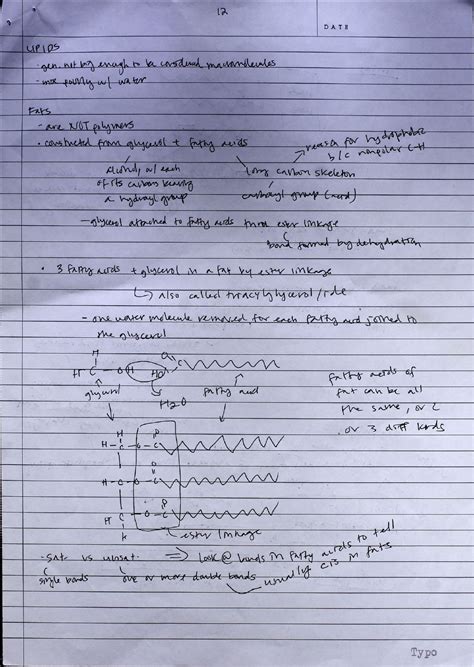 12
DATE
LIPIDS
- gen. not big enough to be considered macromolecules
- mix poorly w/ water
Fats
- are NOT polymers
• constructed from glycerol + fatty acids
reason for hydrophobic
b/c nonpolar C-H
alcohol, w/ each
of its carbon bearing
a hydroxyl group
long carbon skeleton
carboxyl group (acid)
- glycerol attached to fatty acids thro ester linkage
bond formed by dehydration
• 3 fatty acids + glycerol in a fat by ester linkage
↳ also called triacylglycerol/ide
- one water molecule removed, for each fatty acid joined to
the glycerol
H
H - C - O H HO C
O
glycerol
H2O
fatty acid
fatty acids of
fat can be all
the same, or 2
or 3 diff kinds
H O
H - C - O - C
O
C - O - C
O
C - O - C
H
ester linkage
- sat vs unsat. ⇒ look @ bonds in fatty acids to tell
single bonds
one or more double bonds
usually
cis in fats
Typo